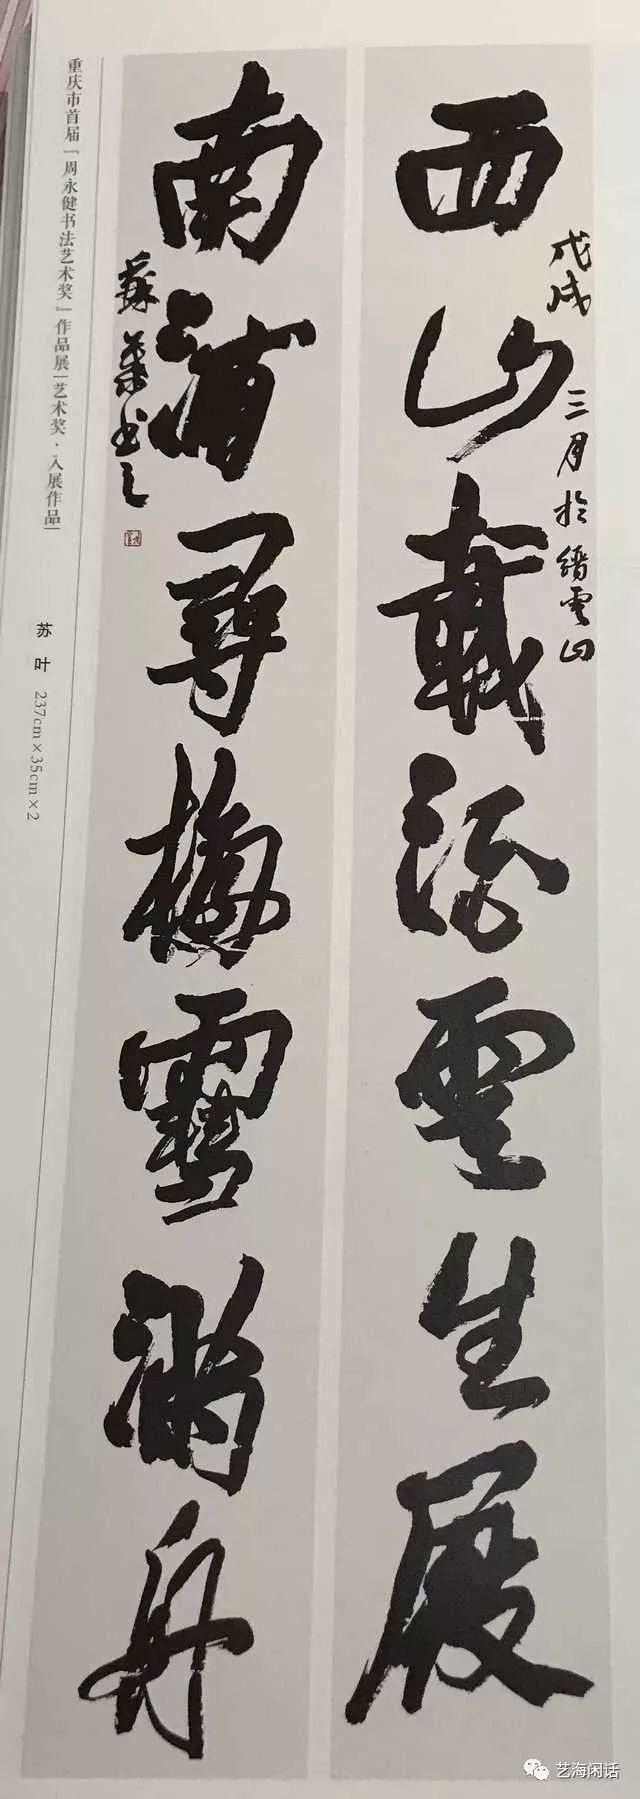 西山載酒雲生屐
戊戌三月於縉雲山
南浦尋梅雪滿舟
蘇葉书之
重庆市首届「周永健书法艺术奖」作品展｜艺术奖·入展作品｜
苏叶 237cm×35cm×2
艺海闲话